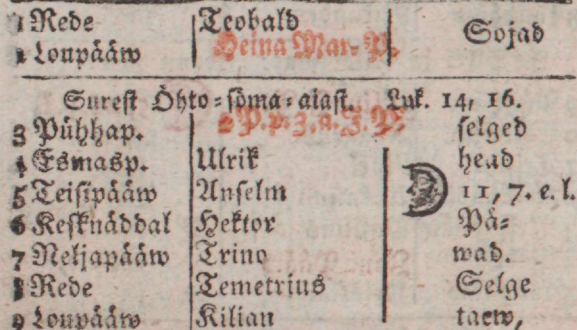 1 Rede Teobald Sojad
2 Loupääw Heina Mar. P.
Surest Öhto-söma-aiast. Luk. 14, 16.
3 Pühhap. 2 P. p. 3. a. J. P. selged
4 Esmasp. Ulrik head
5 Teisipääw Anselm 11, 7. e. l.
6 Kesknäddal Hektor Pä-
7 Neljapääw Trino wad.
8 Rede Temetrius Selge
9 Loupääw Kilian taew,